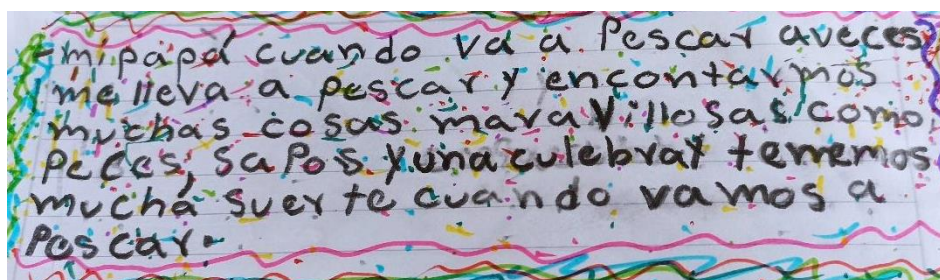 mi papá cuando va a Pescar aveces
me lleva a pescar y encontarmos
muchas cosas maravillosas, como
peces, sapos y una culebra y tenemos
mucha suerte cuando vamos a
Pescar.